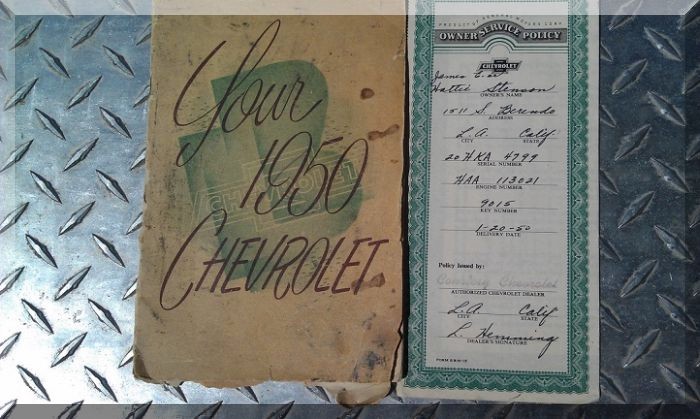 Your
1950
CHEVROLET
CHEVROLET
PRODUCT OF GENERAL MOTORS CORP.
OWNER SERVICE POLICY
CHEVROLET
James E. or
Hattie Stenson
OWNER'S NAME
1511 S. Berendo
ADDRESS
L.A. Calif
CITY STATE
20 HKA 4799
SERIAL NUMBER
HAA 113021
ENGINE NUMBER
9015
KEY NUMBER
1-20-50
DELIVERY DATE
Policy Issued by:
Chevrolet
AUTHORIZED CHEVROLET DEALER
L.A. Calif
CITY STATE
L. Hemming
DEALER'S SIGNATURE